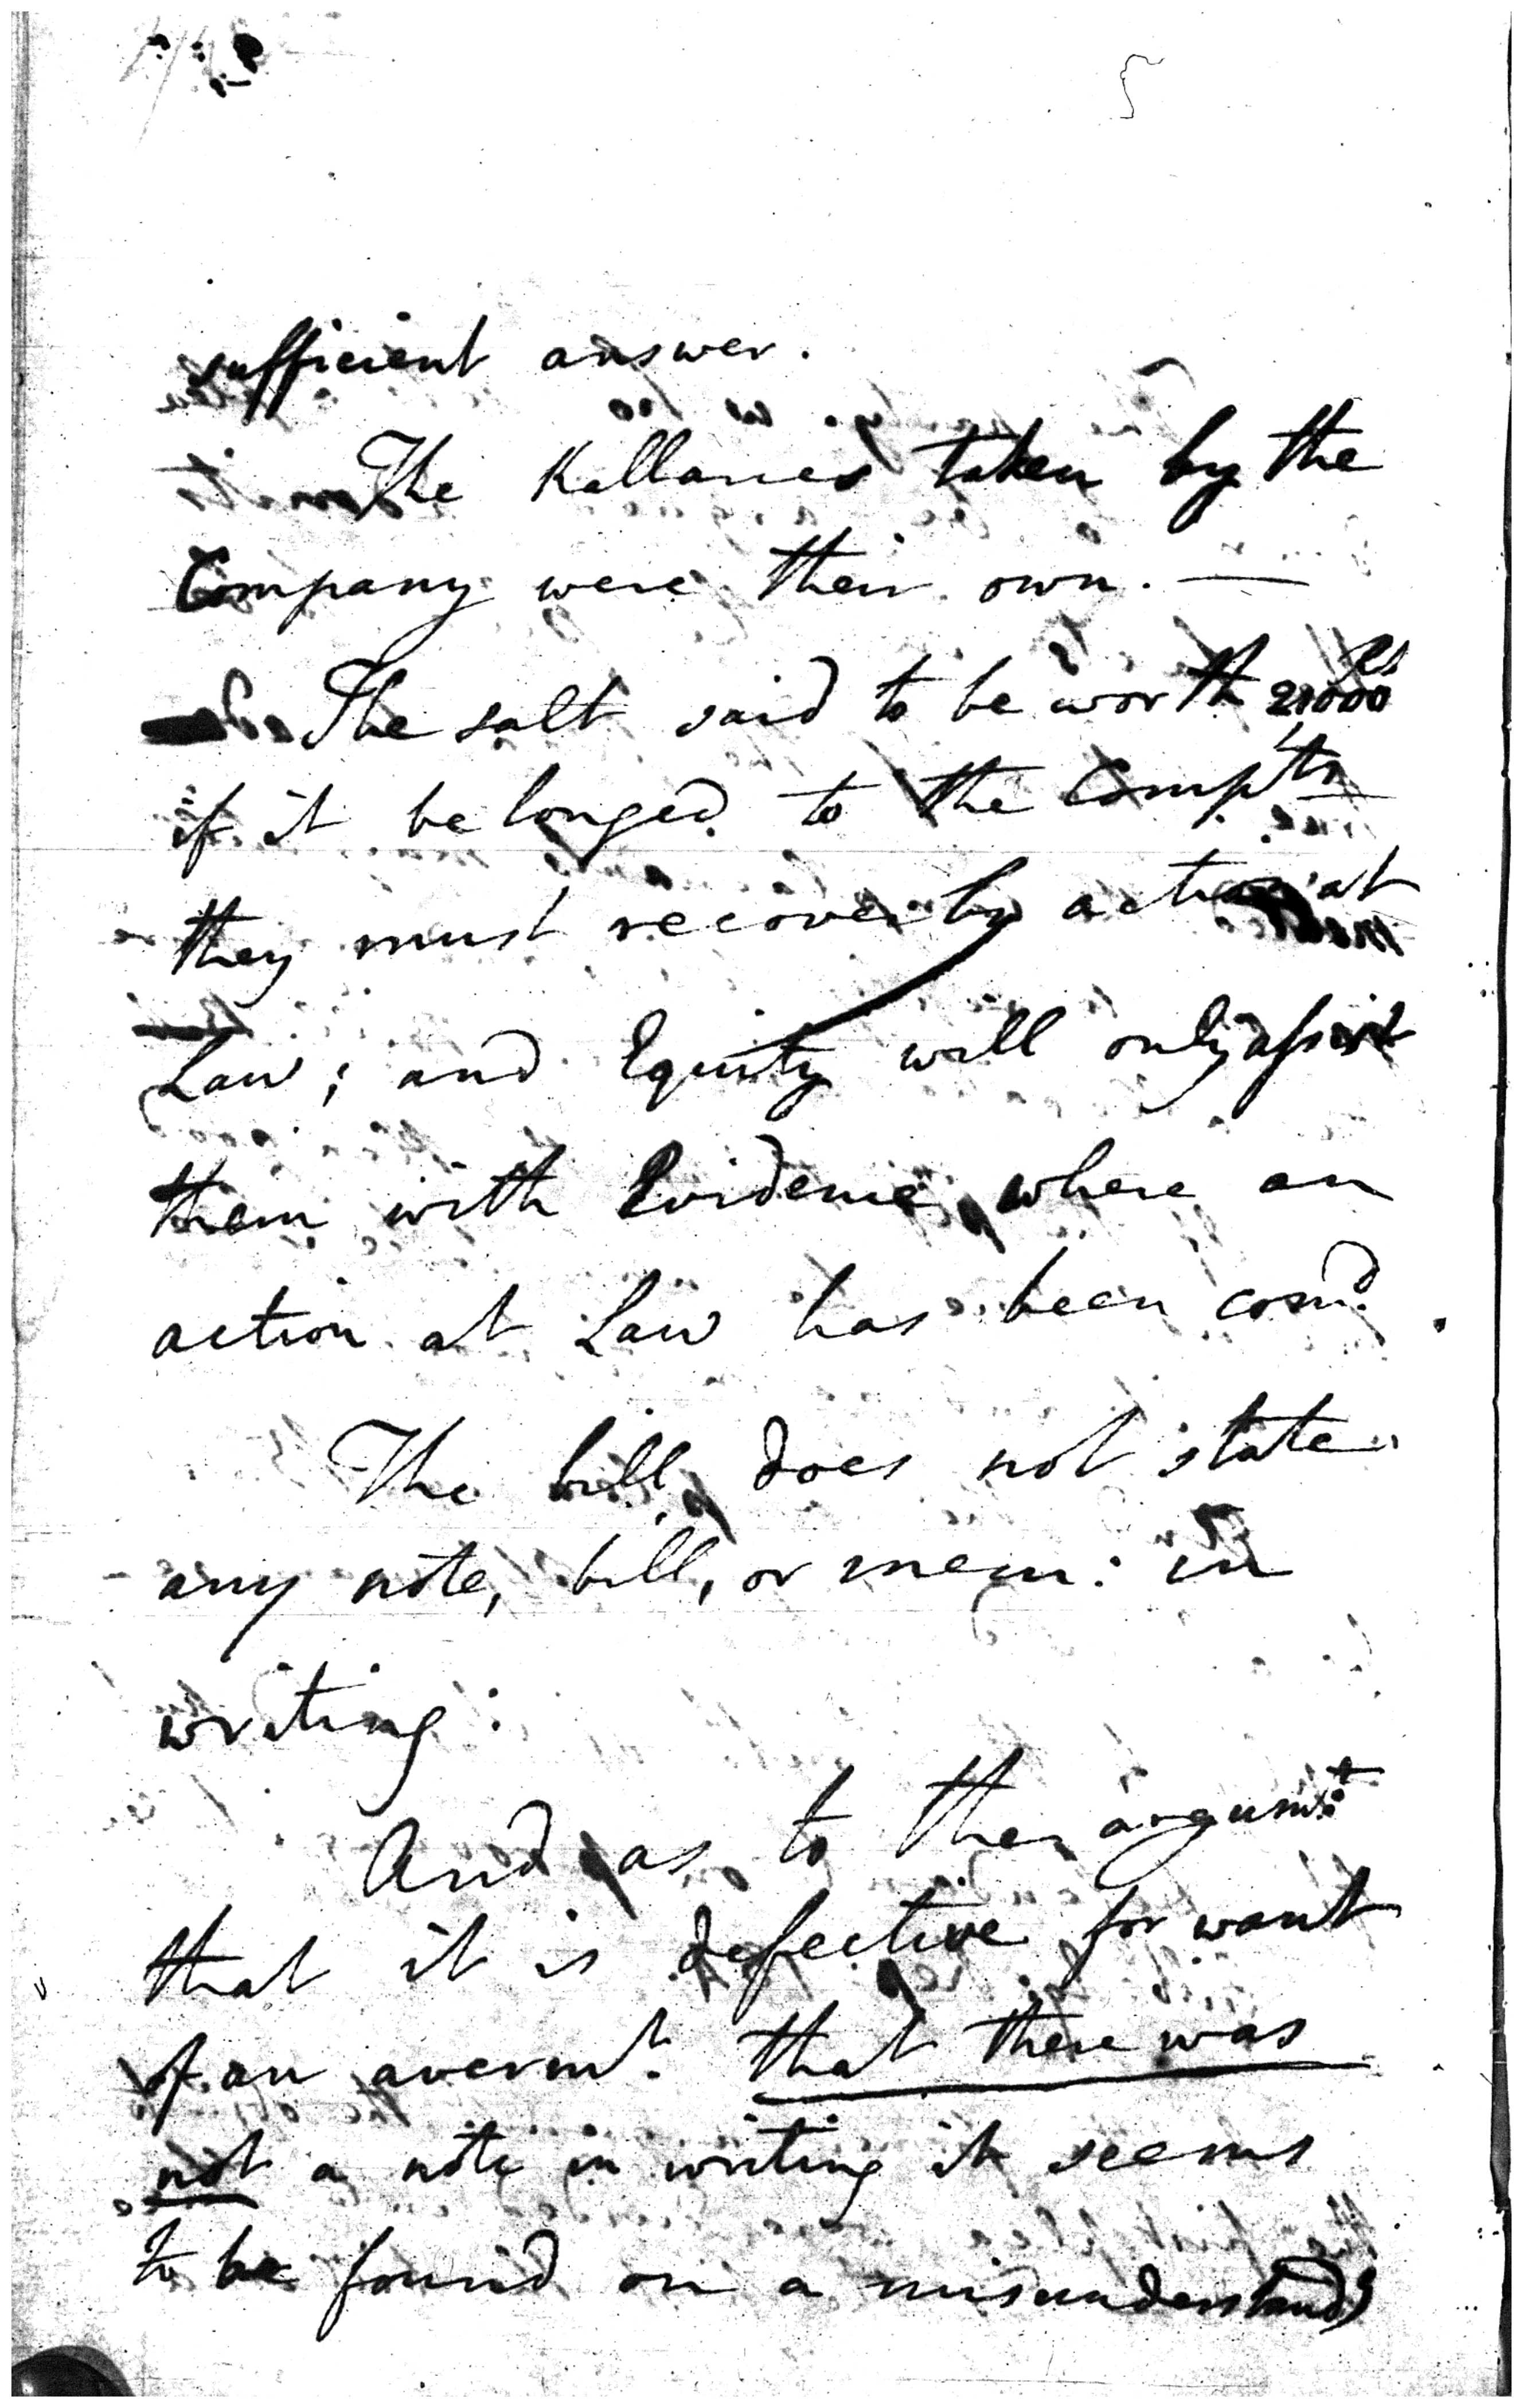 sufficient answer.
The Kallaries taken by the
Company were their own. —
The salt said to be worth 21000 Rs
if it belonged to the Compts
they must recover by action at
Law; and Equity will only assist
them with Evidence, where an
action at Law has been comd.
The bill does not state
any note, bill, or mem: in
writing:
And as to the argumt
that it is defective for want
of an avermt. that there was
not a note in writing it seems
to be found on a misunderstandg